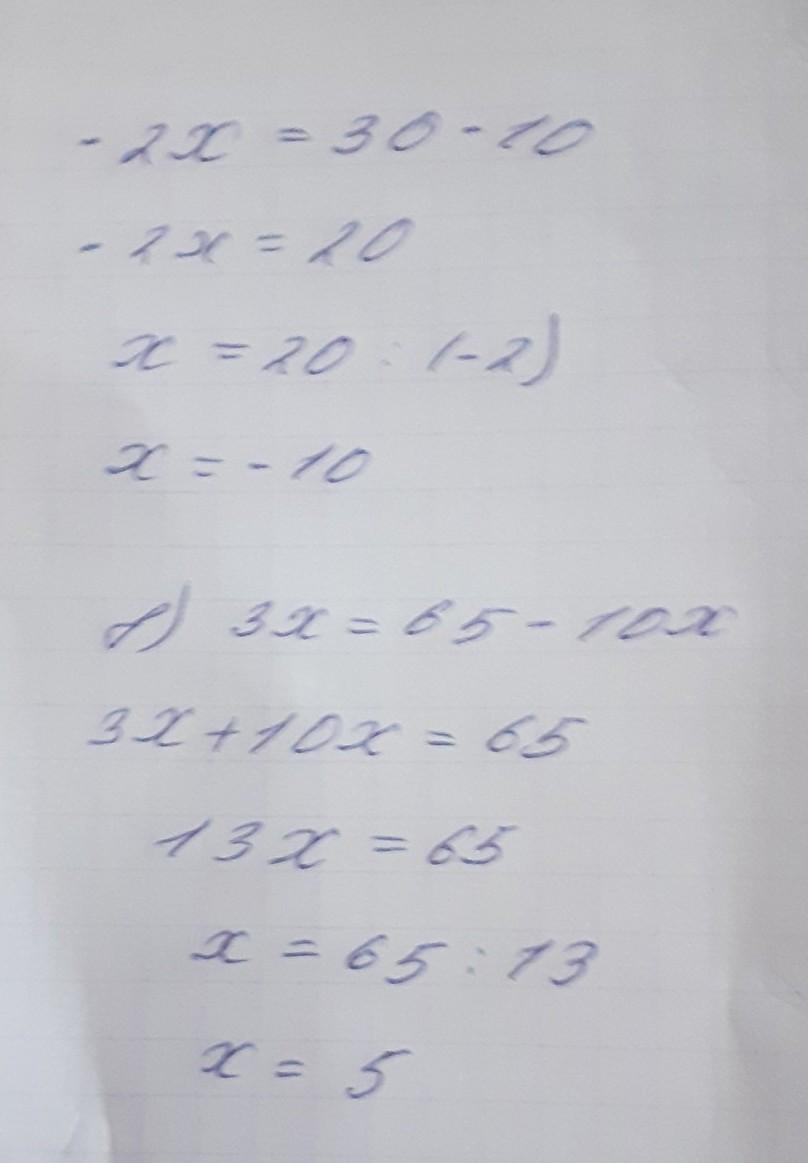 -2x = 30 - 10
-2x = 20
x = 20 : (-2)
x = -10
б) 3x = 65 - 10x
3x + 10x = 65
13x = 65
x = 65 : 13
x = 5